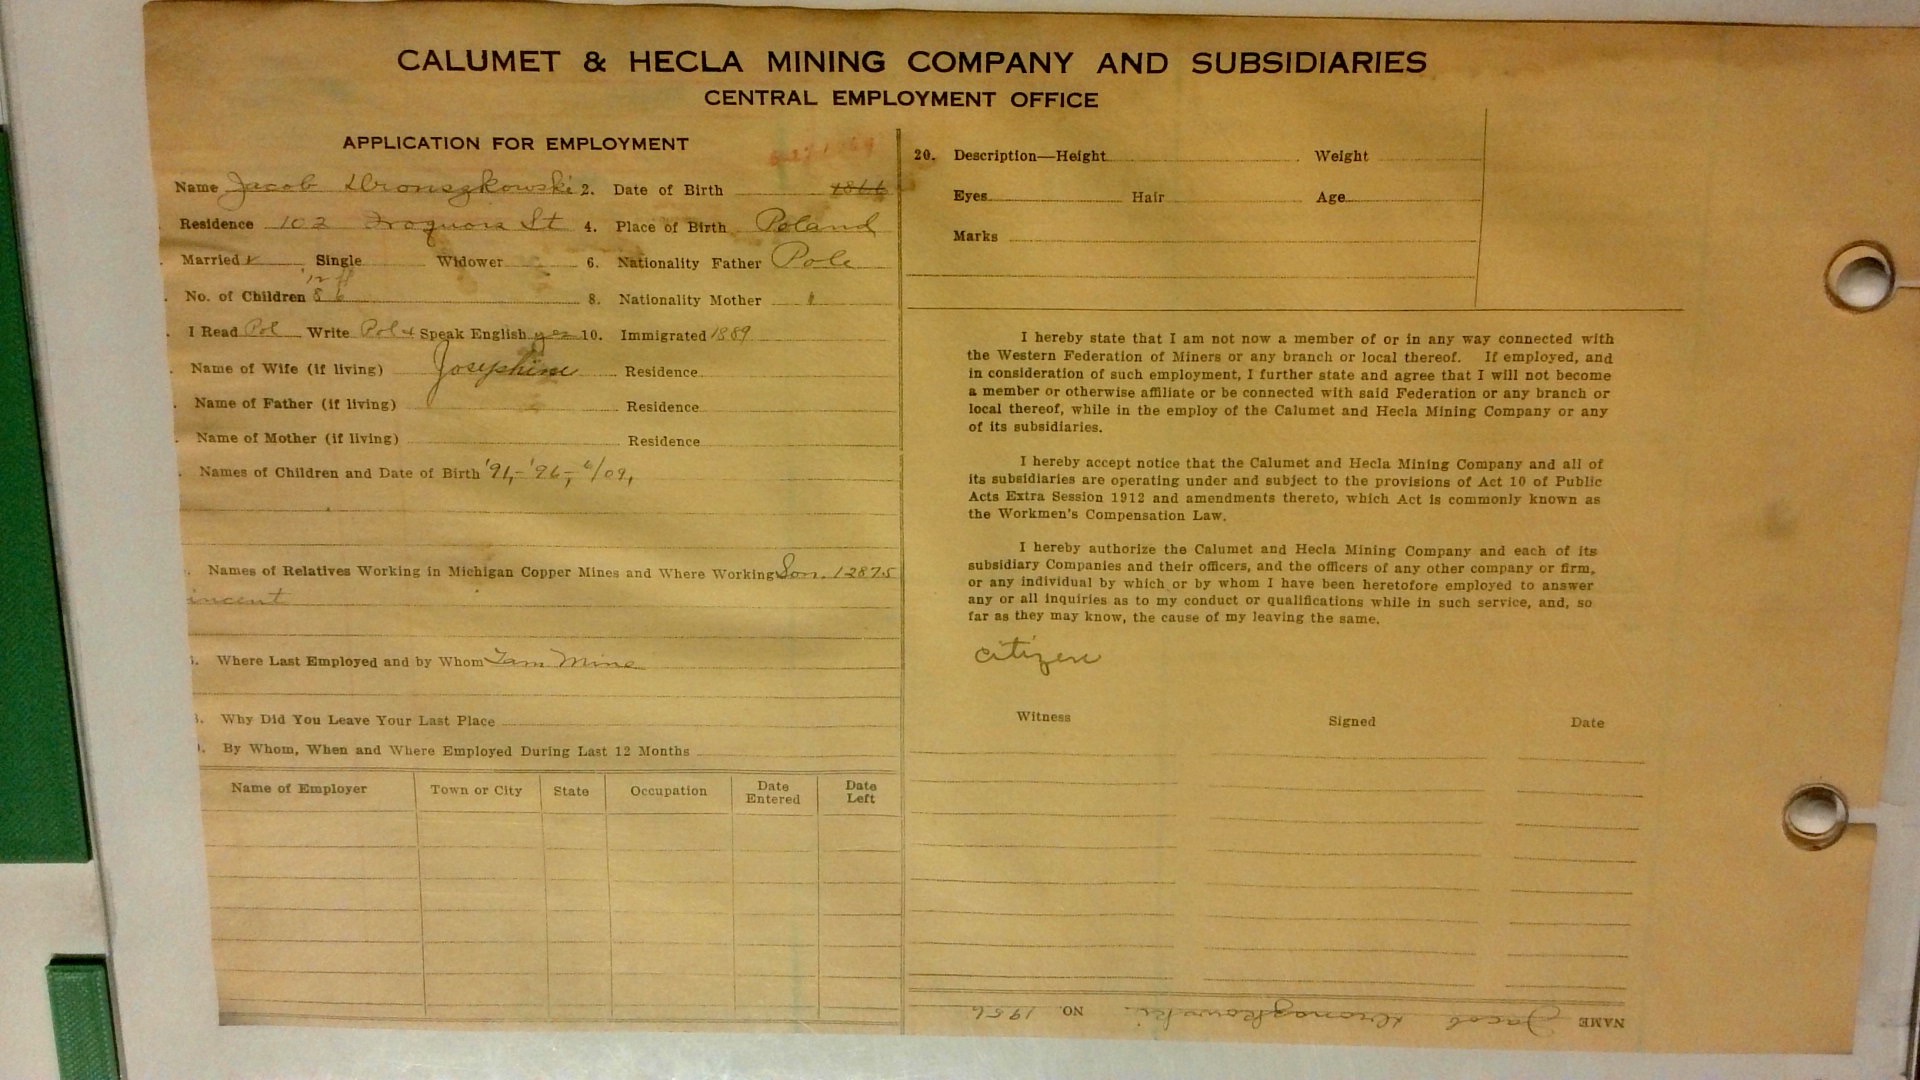 CALUMET & HECLA MINING COMPANY AND SUBSIDIARIES
CENTRAL EMPLOYMENT OFFICE
APPLICATION FOR EMPLOYMENT
Name Jacob Dronszkowski 2. Date of Birth 1866
Residence 102 Iroquois St 4. Place of Birth Poland
Married Single Widower 6. Nationality Father Pole
No. of Children 8. Nationality Mother "
I Read Pol Write Pol & Speak English yes 10. Immigrated 1889
Name of Wife (if living) Josephine Residence
Name of Father (if living) Residence
Name of Mother (if living) Residence
Names of Children and Date of Birth '91,- '96,- 6/09,
Names of Relatives Working in Michigan Copper Mines and Where Working Son. 12875
incent
Where Last Employed and by Whom Tam Mine
Why Did You Leave Your Last Place
By Whom, When and Where Employed During Last 12 Months
Name of Employer Town or City State Occupation Date Entered Date Left
20. Description—Height Weight
Eyes Hair Age
Marks
I hereby state that I am not now a member of or in any way connected with
the Western Federation of Miners or any branch or local thereof. If employed, and
in consideration of such employment, I further state and agree that I will not become
a member or otherwise affiliate or be connected with said Federation or any branch or
local thereof, while in the employ of the Calumet and Hecla Mining Company or any
of its subsidiaries.
I hereby accept notice that the Calumet and Hecla Mining Company and all of
its subsidiaries are operating under and subject to the provisions of Act 10 of Public
Acts Extra Session 1912 and amendments thereto, which Act is commonly known as
the Workmen's Compensation Law.
I hereby authorize the Calumet and Hecla Mining Company and each of its
subsidiary Companies and their officers, and the officers of any other company or firm,
or any individual by which or by whom I have been heretofore employed to answer
any or all inquiries as to my conduct or qualifications while in such service, and, so
far as they may know, the cause of my leaving the same.
citizen
Witness Signed Date
NAME Jacob Dronszkowski. NO. 1956